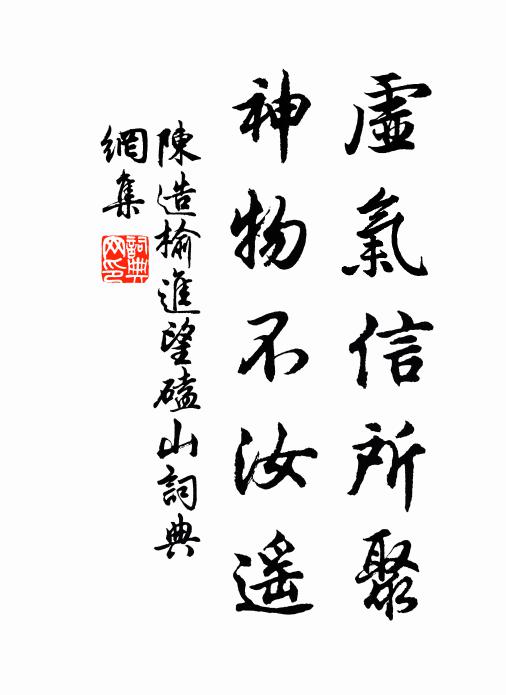 虛氣信所聚
神物不汝遥
陳造榆進望磕山詞典
網集
詞典
网印